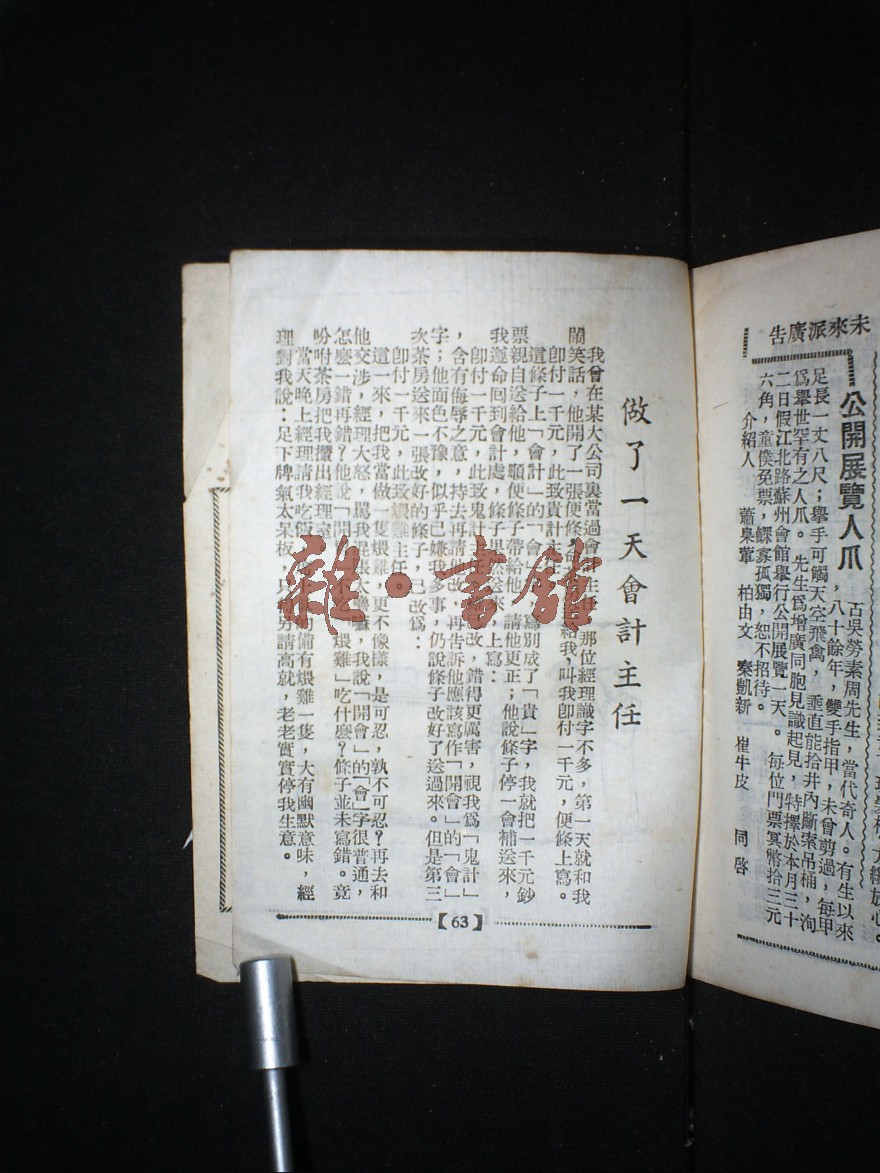 做了一天會計主任
我曾在某大公司裏當過會計主任，那位經理識字不多，第一天就和我
鬧笑話，他開了一張便條，給我，叫我卽付一千元，便條上寫。
卽付一千元，此致貴計主任
這條子上「會計」的「會」字，寫別成了「貴」字，我就把一千元鈔
票親自送給他，順便條子帶給他，請他更正；他說條子停一會補送來，
我遵命囘到會計處，條子果送來，上寫：
卽付一千元，此致鬼計主任
，含有侮辱之意，持去再請改，再告訴他應該寫作「開會」的「會」
字；他面色不豫，似乎已嫌我多事，仍說條子改好了送過來。但是第三
次茶房送來一張改好的條子，已改爲：
卽付一千元，此致煨雞主任。
這一來，把我當做一隻煨雞，更不像樣，是可忍，孰不可忍？再去和
他交涉，經理大怒，罵我，我說「開會」的「會」字很普通，
怎麽一錯再錯？他說「開煨雞」吃什麽？條子並未寫錯。竟
吩咐茶房把我攆出經理室
當天晚上經理請我吃飯，備有煨雞一隻，大有幽默意味，經
理對我說：足下脾氣太呆板，只好另請高就，老老實實停我生意。
【63】
未來派廣告
公開展覽人爪
百吳勞素周先生，當代奇人。有生以來
，八十餘年，雙手指甲，未曾剪過，每甲
足長一丈八尺；舉手可觸天空飛禽，垂直能拾井內斷索吊桶，洵
爲舉世罕有之人爪。先生爲增廣同胞見識起見，特擇於本月三十
二日假江北路蘇州會館舉行公開展覽一天。每位門票冥幣拾三元
六角，童僕免票，鰥寡孤獨，恕不招待。
介紹人 蕭臬葦 柏由文 秦凱新 崔牛皮 同啓
雜·書館